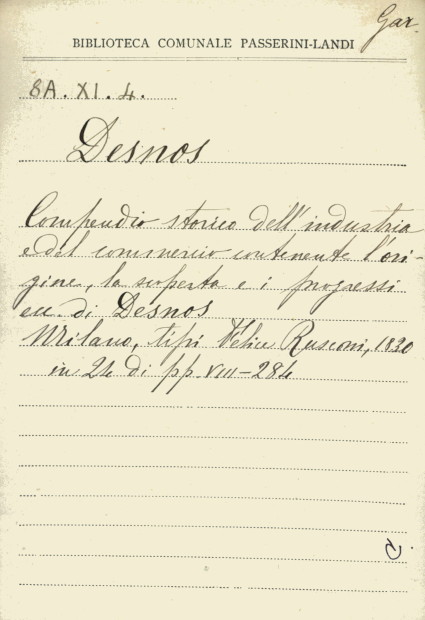 Gar.
BIBLIOTECA COMUNALE PASSERINI-LANDI
8A. XI. 4.
Desnos
Compendio storico dell'industria
e del commercio contenente l'ori-
gine, la scoperta e i progressi
ecc. di Desnos
Milano, tipi Felice Rusconi, 1830
in 24 di pp. VIII-284